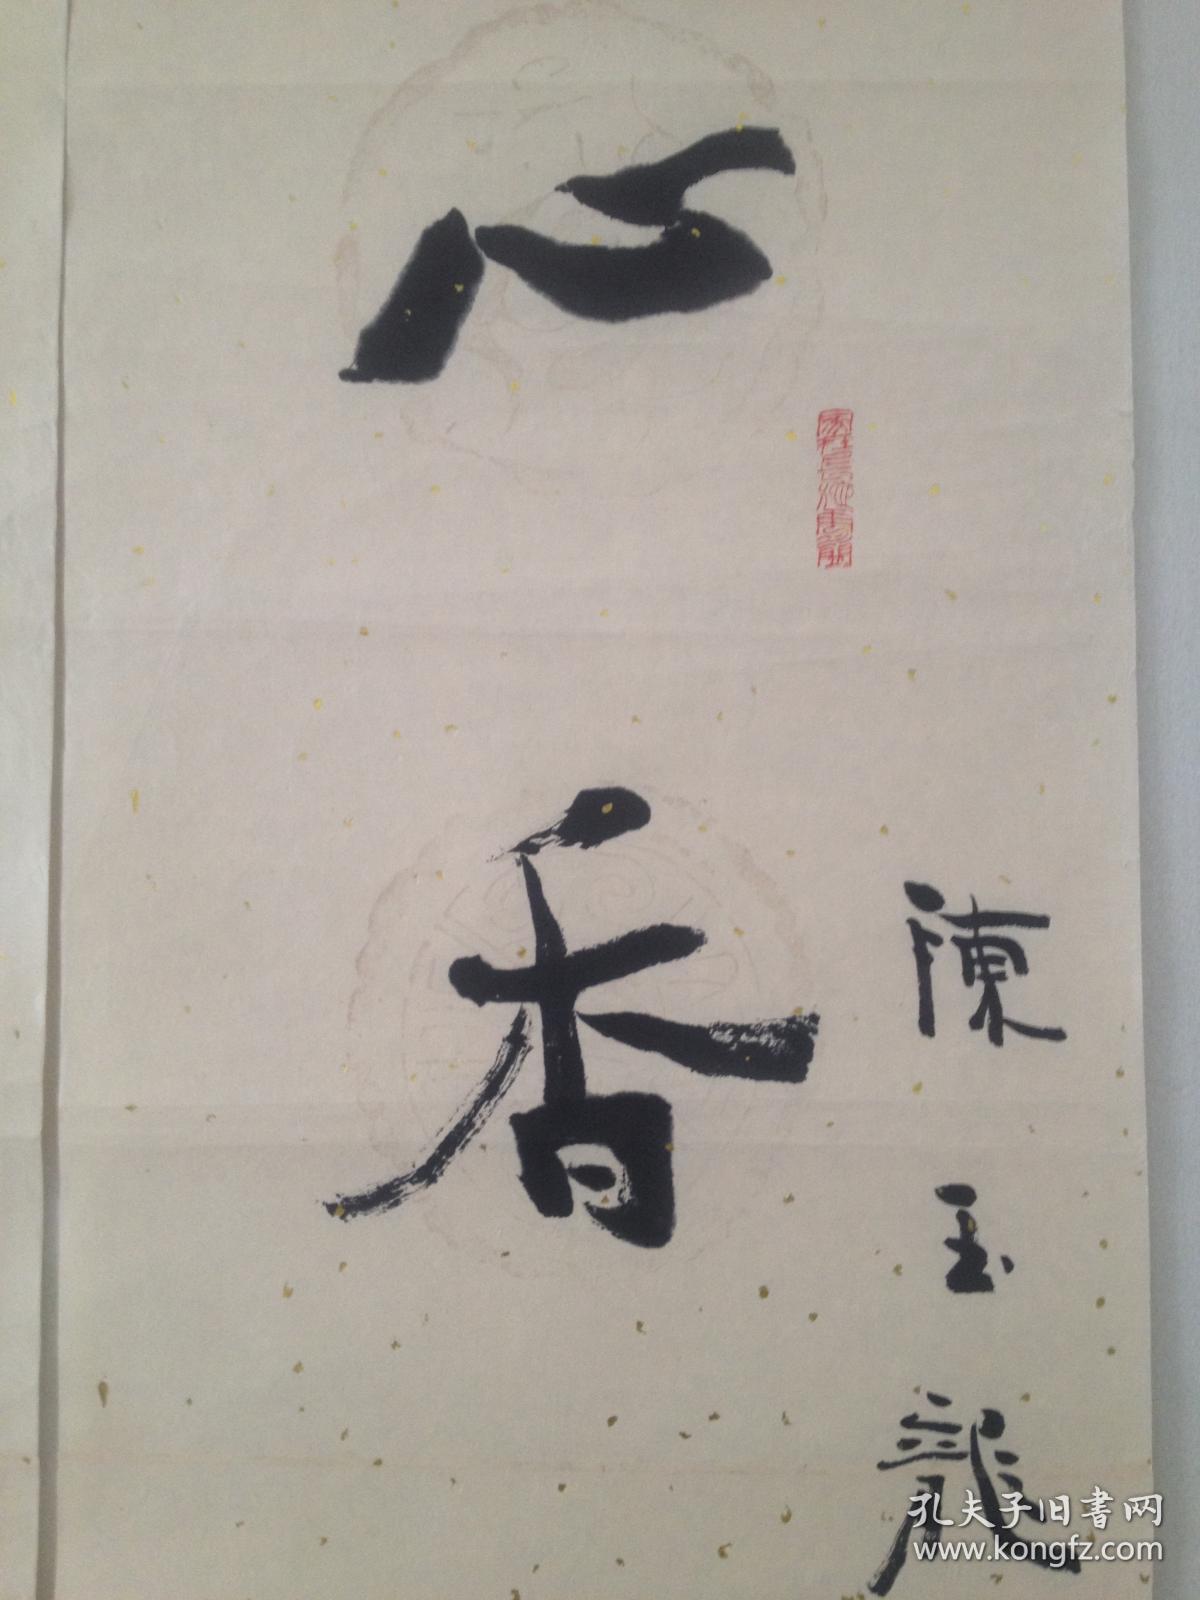 心香
陳玉龍
孔夫子旧書网
www.kongfz.com